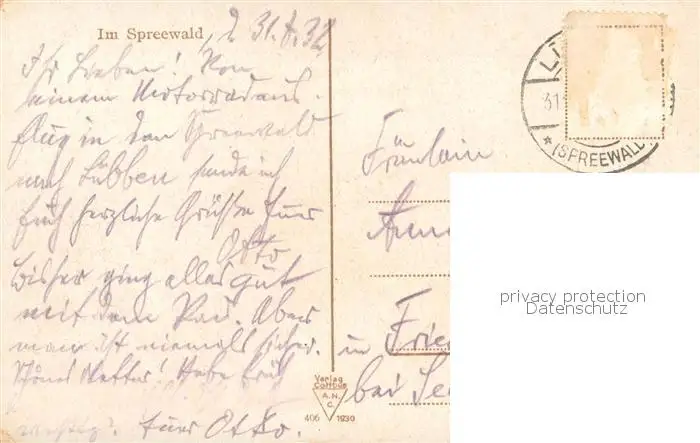 Im Spreewald, d 31.8.32
Ihr Lieben! Von
einem Motorradaus-
flug in den Spreewald
nach Lübben sende ich
Euch herzliche Grüsse Euer
Otto
Bisher ging alles gut
mit dem Rad. Aber
man ist niemals sicher.
Schönes Wetter! Habe früh
Euer Otto.
LÜ
31
* (SPREEWALD)
Fräulein
Anne
in Frie
bei See
privacy protection
Datenschutz
Verlag
Cottbus
A.N.
C.
406 1930